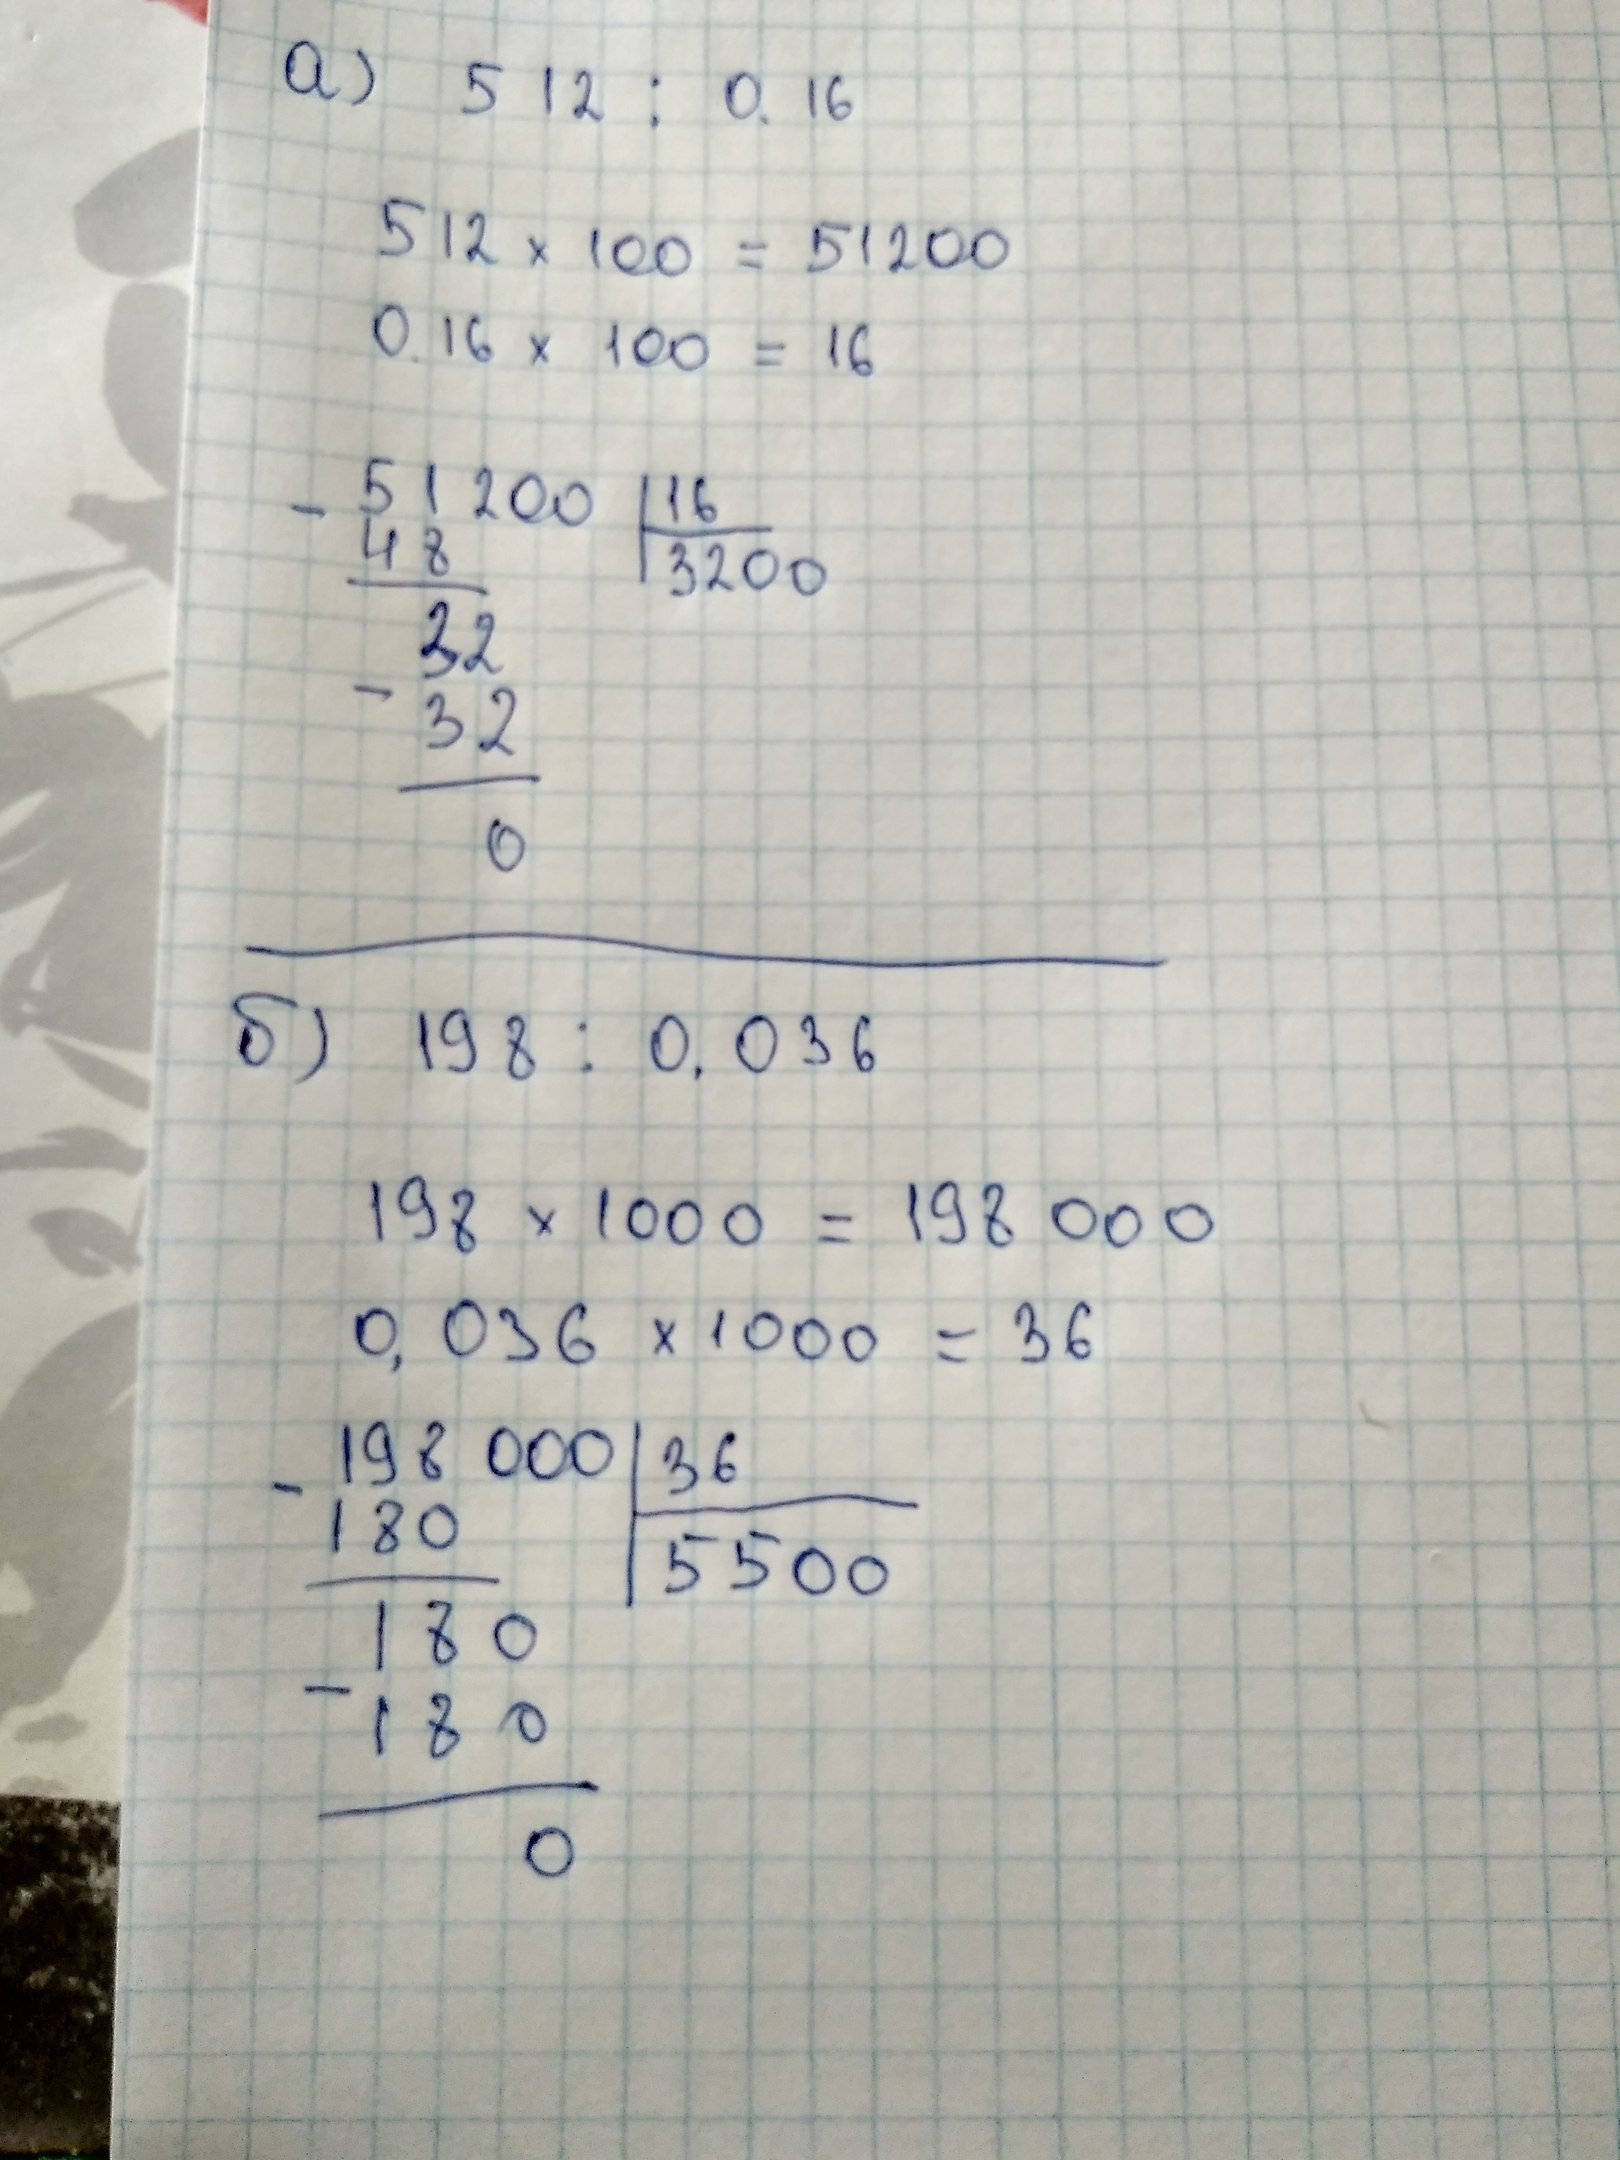 а) 512 : 0.16
512 × 100 = 51200
0.16 × 100 = 16
- 51200 | 16
48 | 3200
32
- 32
0
б) 198 : 0,036
198 × 1000 = 198 000
0,036 × 1000 = 36
- 198 000 | 36
180 | 5500
180
- 180
0